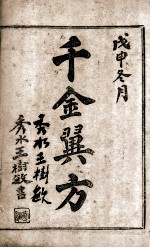 戊申冬月
千金翼方
秀水王樹敏
秀水王樹敏書